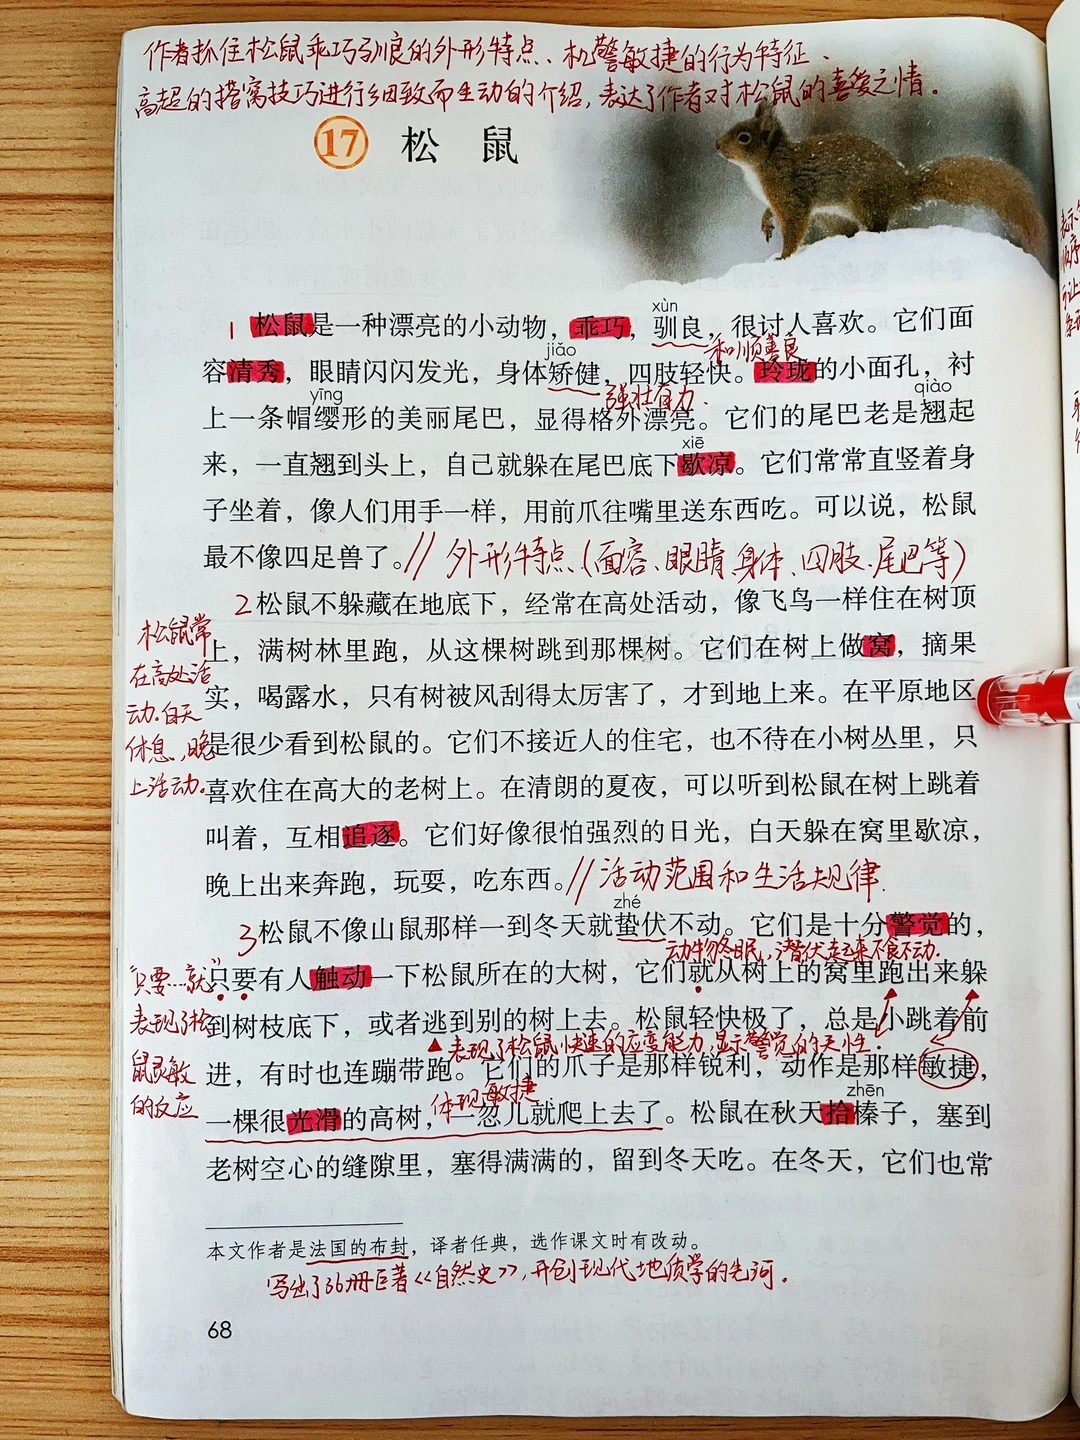 作者抓住松鼠乖巧驯良的外形特点、机警敏捷的行为特征、
高超的搭窝技巧进行细致而生动的介绍，表达了作者对松鼠的喜爱之情。
17 松 鼠
xùn
1 松鼠是一种漂亮的小动物，乖巧，驯良，很讨人喜欢。它们面
和顺善良
jiǎo
容清秀，眼睛闪闪发光，身体矫健，四肢轻快。玲珑的小面孔，衬
强壮有力.
yīng qiào
上一条帽缨形的美丽尾巴，显得格外漂亮。它们的尾巴老是翘起
xiē
来，一直翘到头上，自己就躲在尾巴底下歇凉。它们常常直竖着身
子坐着，像人们用手一样，用前爪往嘴里送东西吃。可以说，松鼠
最不像四足兽了。// 外形特点（面容、眼睛、身体、四肢、尾巴等）
2 松鼠不躲藏在地底下，经常在高处活动，像飞鸟一样住在树顶
上，满树林里跑，从这棵树跳到那棵树。它们在树上做窝，摘果
实，喝露水，只有树被风刮得太厉害了，才到地上来。在平原地区
是很少看到松鼠的。它们不接近人的住宅，也不待在小树丛里，只
喜欢住在高大的老树上。在清朗的夏夜，可以听到松鼠在树上跳着
叫着，互相追逐。它们好像很怕强烈的日光，白天躲在窝里歇凉，
晚上出来奔跑，玩耍，吃东西。// 活动范围和生活规律.
松鼠常
在高处活
动.白天
休息，晚
上活动。
zhé
3 松鼠不像山鼠那样一到冬天就蛰伏不动。它们是十分警觉的，
动物冬眠，潜伏起来不食不动.
只要有人触动一下松鼠所在的大树，它们就从树上的窝里跑出来躲
到树枝底下，或者逃到别的树上去。松鼠轻快极了，总是小跳着前
▲表现了松鼠快速的应变能力，显示警觉的天性.
进，有时也连蹦带跑。它们的爪子是那样锐利，动作是那样敏捷，
体现敏捷
zhēn
一棵很光滑的高树，一忽儿就爬上去了。松鼠在秋天拾榛子，塞到
老树空心的缝隙里，塞得满满的，留到冬天吃。在冬天，它们也常
“只要…就”
表现了松
鼠灵敏
的反应
本文作者是法国的布封，译者任典，选作课文时有改动。
写出了36册巨著《自然史》，开创现代地质学的先河。
68